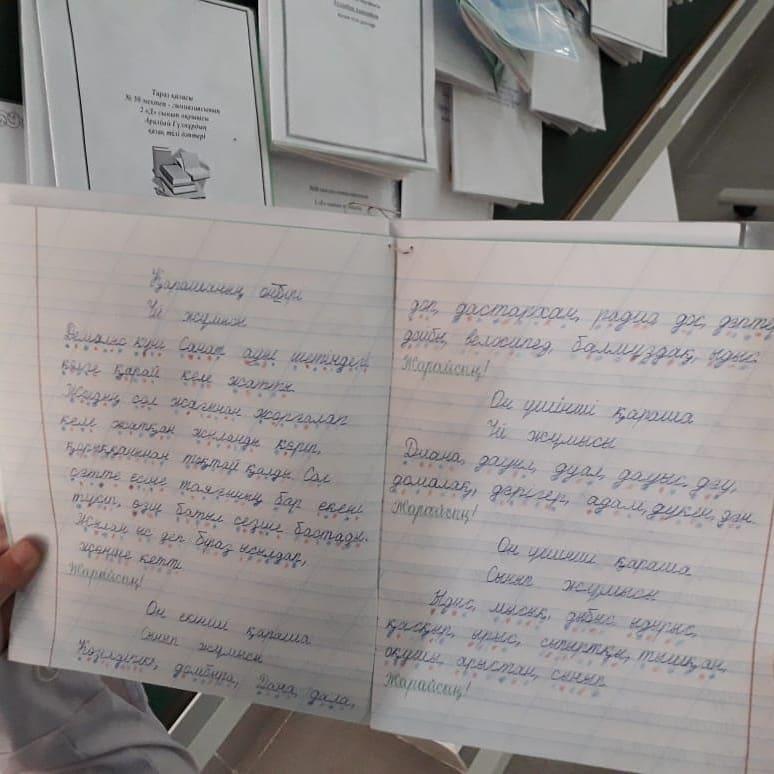 Тараз қаласы
№ 10 мектеп - гимназиясының
2 «Д» сынып оқушысы
Аралбай Гүлнұрдың
қазақ тілі дәптері
Қарашаның онбірі
Үй жұмысы
Демалыс күні Санат ауыл шетіндегі
көлге қарай келе жатты.
Жолдың сол жағынан жорғалап
келе жатқан жыланды көріп,
қорыққанынан тоқтай қалды. Сол
сәтте есіне таяғының бар екені
түсіп, өзін батыл сезіне бастады.
Жылан ыс деп біраз ысылдап,
жөніне кетті.
Жарайсың!
Он екінші қараша
Сынып жұмысы
Көзілдірік, домбыра, Дана, дала,
дәп, дастархан, радио дос, дәпте
дойбы, велосипед, балмұздақ, ыдыс.
Жарайсың!
Он үшінші қараша
Үй жұмысы
Диана, дауыл, дуал, дауыс, дәу,
домалақ, дәрігер, адал, дүкен, дән.
Жарайсың!
Он үшінші қараша
Сынып жұмысы
Ыдыс, мысық, дыбыс ыдырыс,
қасқыр, ырыс, сыпыртқы, тышқан,
оқушы, арыстан, сынып
Жарайсың!